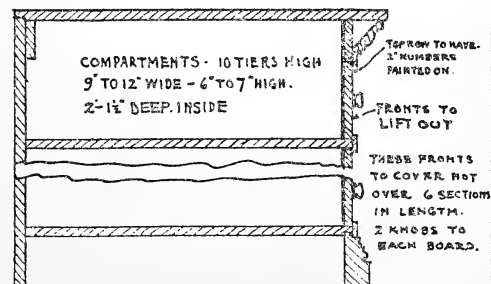 COMPARTMENTS - 10 TIERS HIGH
9" TO 12" WIDE - 6" TO 7" HIGH.
2'-1½" DEEP. INSIDE
TOP ROW TO HAVE
2" NUMBERS
PAINTED ON.
FRONTS TO
LIFT OUT
THESE FRONTS
TO COVER NOT
OVER 6 SECTIONS
IN LENGTH.
2 KNOBS TO
EACH BOARD.